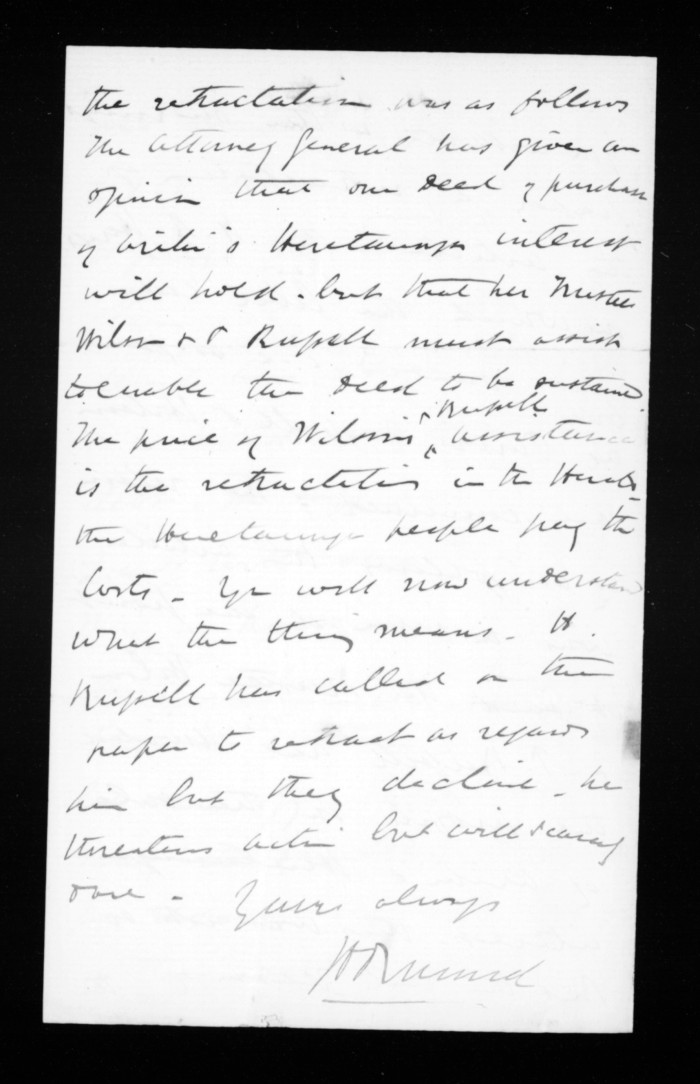 the retractation was as follows
The Attorney General has given an
opinion that our Deed of purchase
of Arihi's Heretaunga interest
will hold - but that her Trustees
Wilson & P Russell must assist
to enable the Deed to be sustained.
The price of Wilson's ^ Russell assistance
is the retractation in the Herald -
the Heretaunga people pay the
Costs - You will now understand
what the thing means - H.
Russell has called on the
paper to retract as regards
him but they decline - he
threatens action but will scarcely
dare - Yours always